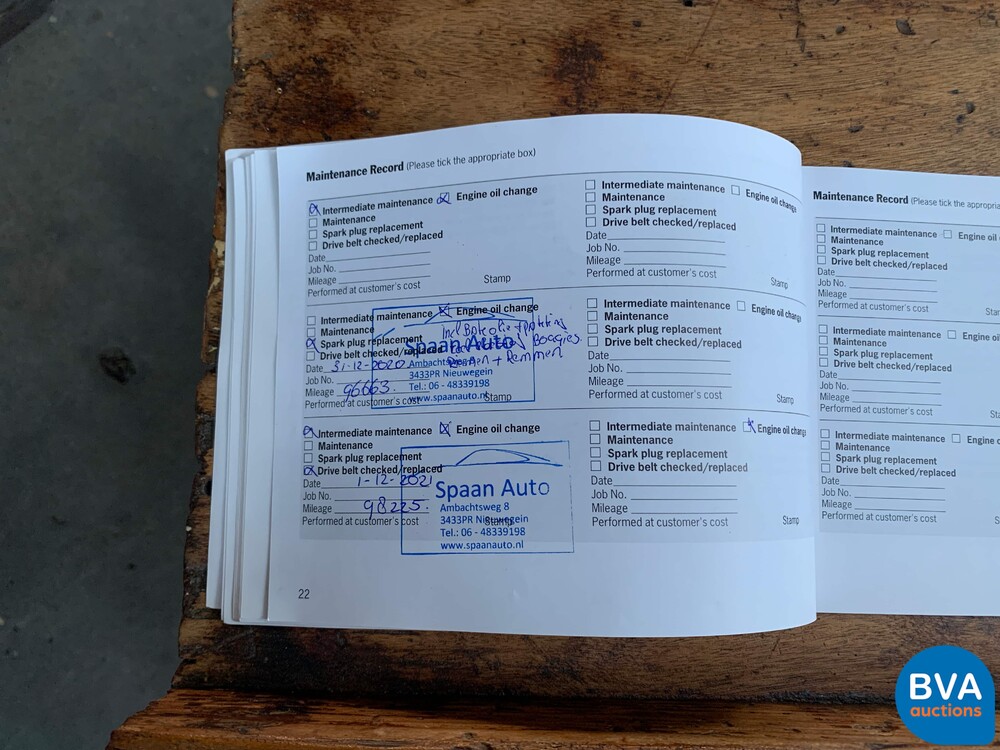 Maintenance Record (Please tick the appropriate box)
Intermediate maintenance Engine oil change
Maintenance
Spark plug replacement
Drive belt checked/replaced
Date
Job No.
Mileage
Performed at customer's cost Stamp
Intermediate maintenance Engine oil change
Maintenance
Spark plug replacement
Drive belt checked/replaced
Date 31-12-2020
Job No.
Mileage 96663.
Performed at customer's cost Stamp
Spaan Auto
Ambachtsweg 8
3433PR Nieuwegein
Tel.: 06 - 48339198
www.spaanauto.nl
Bougies
+ Remmen
Intermediate maintenance Engine oil change
Maintenance
Spark plug replacement
Drive belt checked/replaced
Date 1-12-2021
Job No.
Mileage 98225.
Performed at customer's cost Stamp
Spaan Auto
Ambachtsweg 8
3433PR Nieuwegein
Tel.: 06 - 48339198
www.spaanauto.nl
22
Intermediate maintenance Engine oil change
Maintenance
Spark plug replacement
Drive belt checked/replaced
Date
Job No.
Mileage
Performed at customer's cost Stamp
Intermediate maintenance Engine oil change
Maintenance
Spark plug replacement
Drive belt checked/replaced
Date
Job No.
Mileage
Performed at customer's cost Stamp
Intermediate maintenance Engine oil change
Maintenance
Spark plug replacement
Drive belt checked/replaced
Date
Job No.
Mileage
Performed at customer's cost Stamp
Maintenance Record (Please tick the appropria
Intermediate maintenance Engine oil
Maintenance
Spark plug replacement
Drive belt checked/replaced
Date
Job No.
Mileage
Performed at customer's cost Sta
Intermediate maintenance Engine oil
Maintenance
Spark plug replacement
Drive belt checked/replaced
Date
Job No.
Mileage
Performed at customer's cost Sta
Intermediate maintenance Engine
Maintenance
Spark plug replacement
Drive belt checked/replaced
Date
Job No.
Mileage
Performed at customer's cost
BVA
auctions